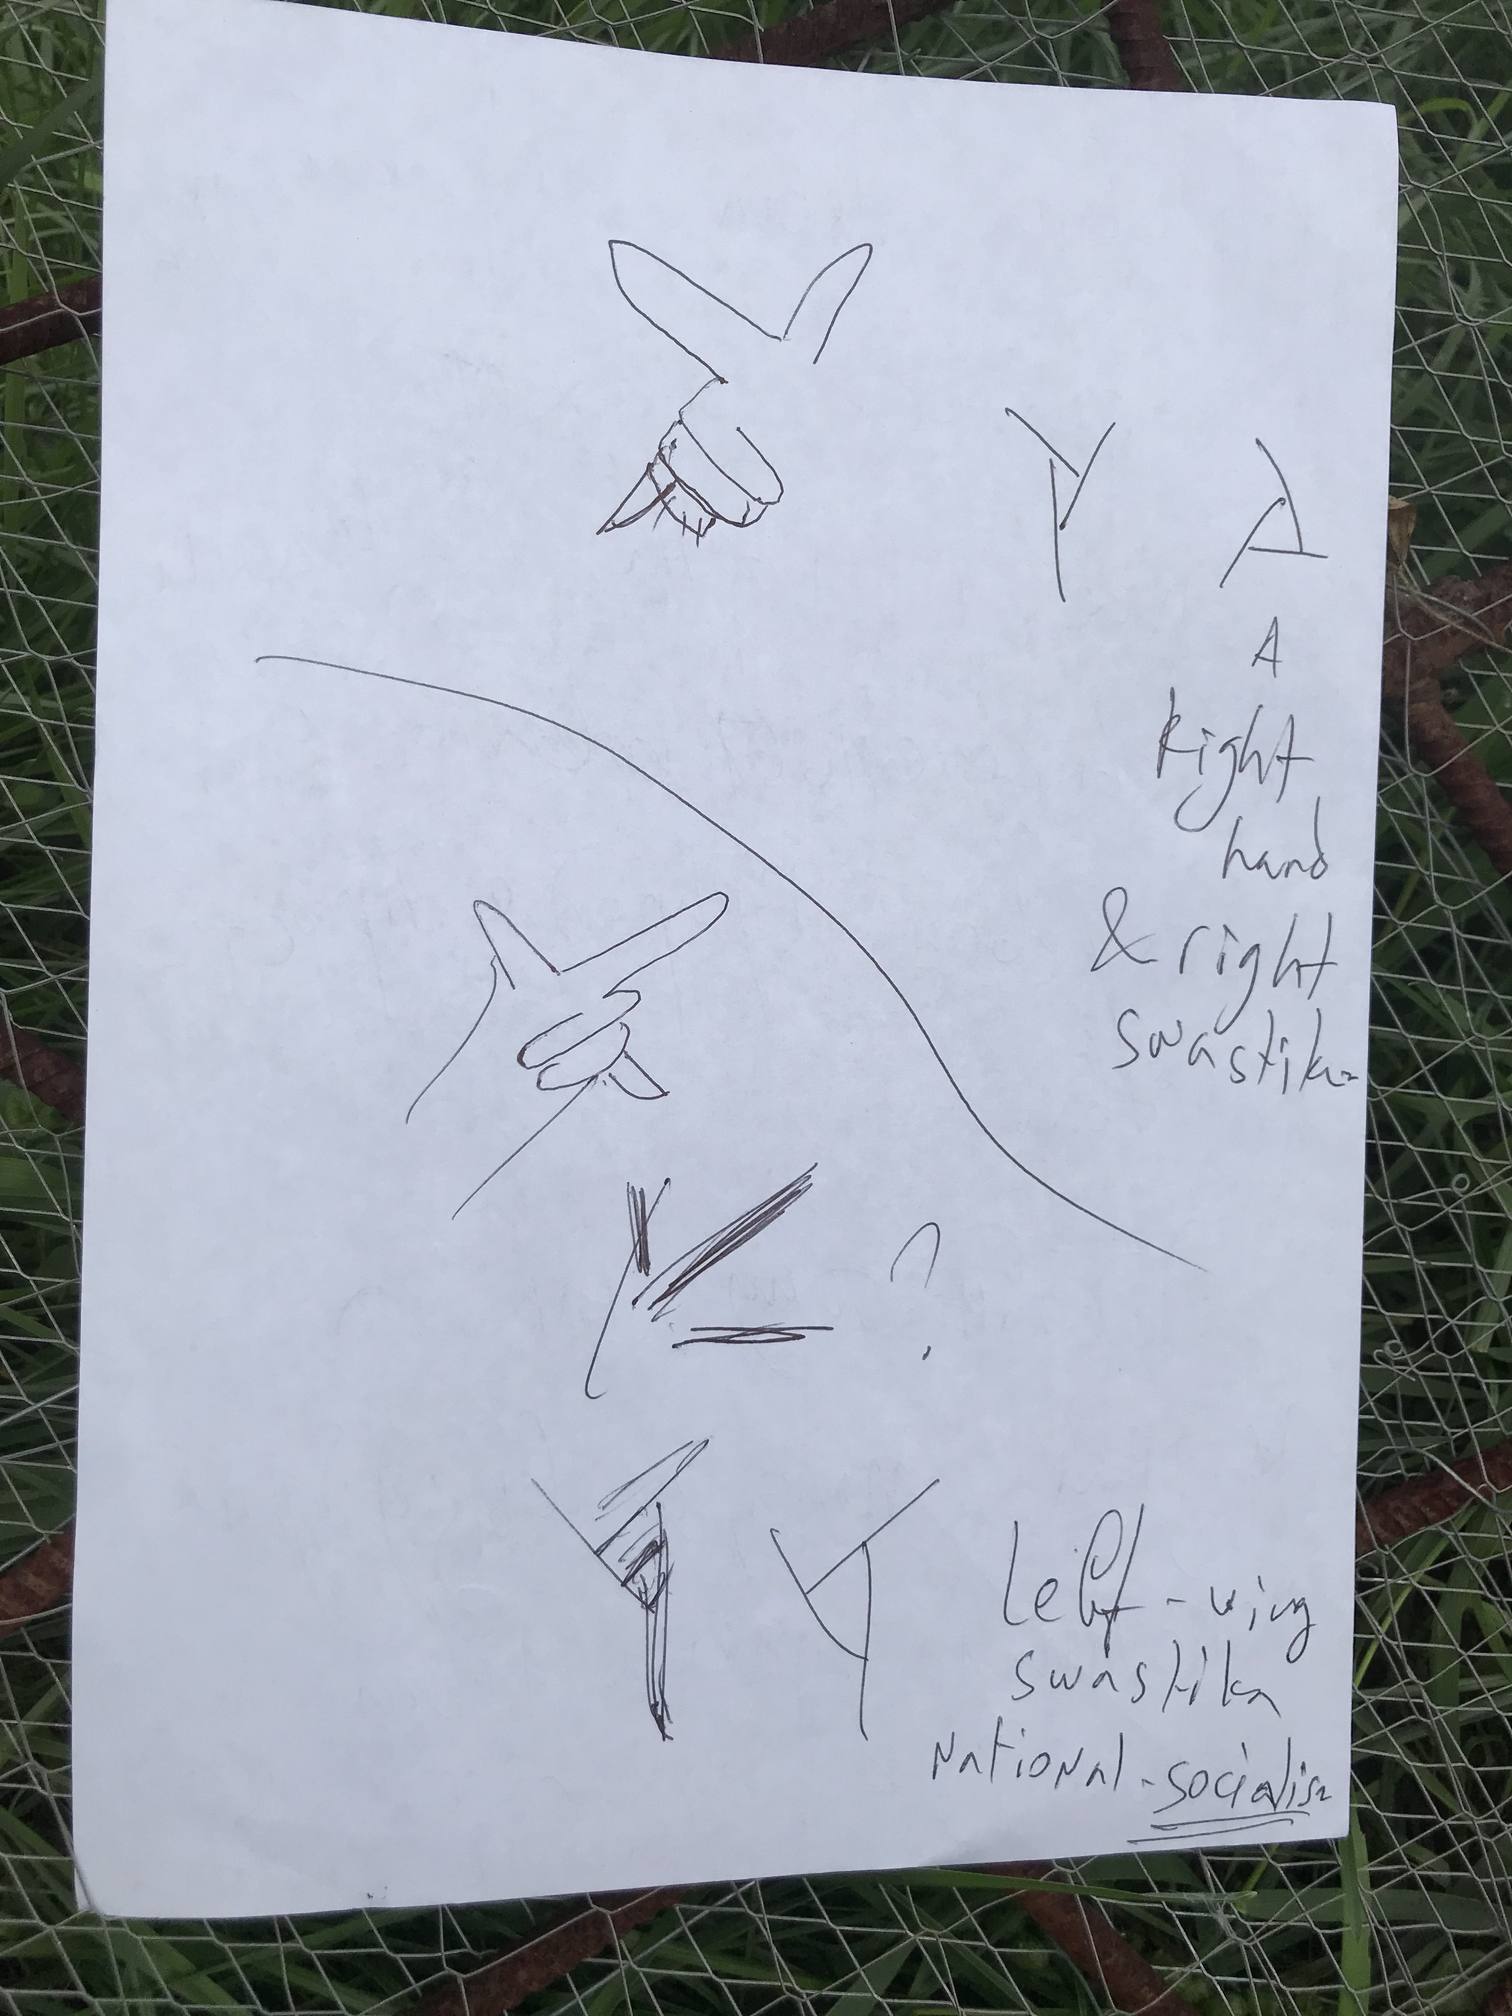 A
Right
hand
& right
swastika
?
Left-wing
swastika
National-socialism